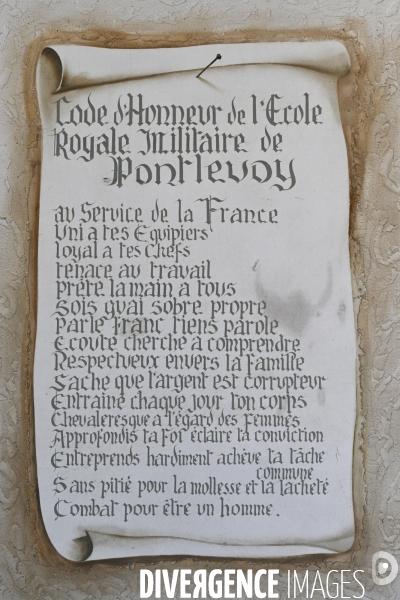 Code d'Honneur de l'Ecole
Royale Militaire de
Pontlevoy
au Service de la France
Uni a tes Equipiers
loyal a tes Chefs
tenace au travail
prete la main a tous
Sois guai sobre propre
Parle Franc tiens parole
Ecoute cherche a comprendre
Respectueux envers la Famille
Sache que l'argent est corrupteur
Entraine chaque jour ton corps
Chevaleresque a l'égard des Femmes
Approfondis ta Foi éclaire ta conviction
Entreprends hardiment achève ta tâche
commune
Sans pitié pour la mollesse et la lacheté
Combat pour être un homme.
DIVERGENCE IMAGES